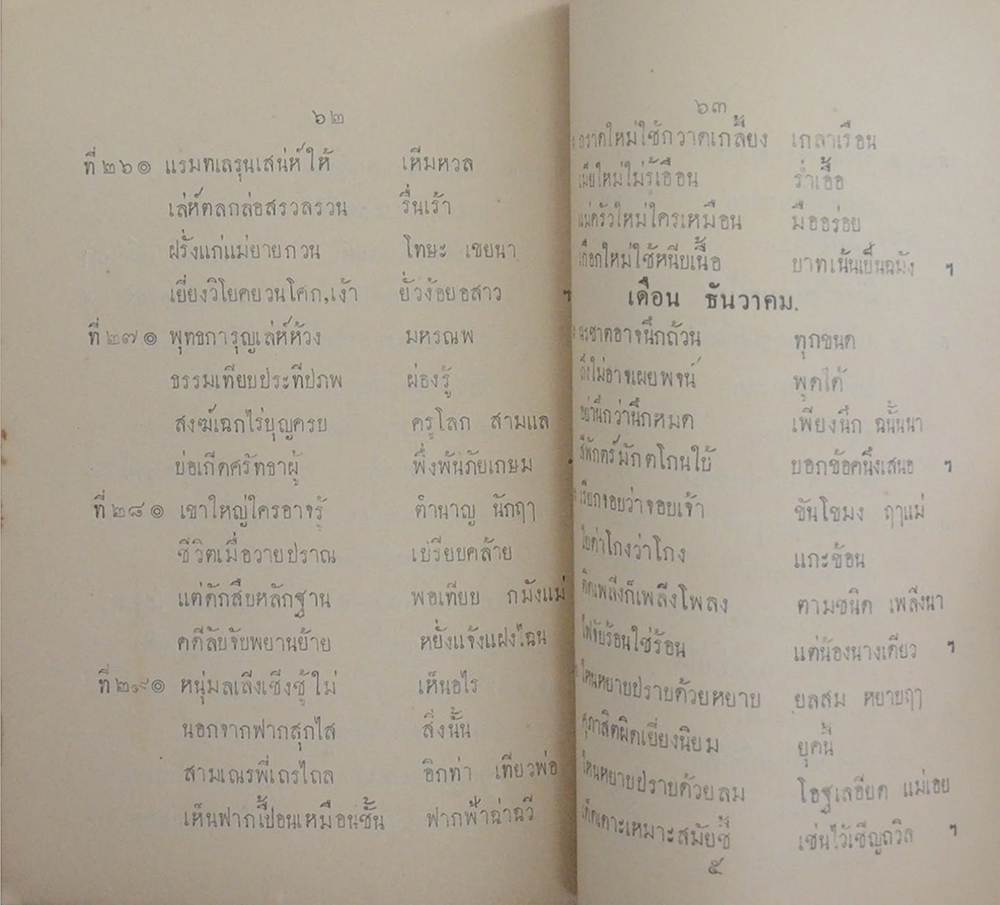 ๖๒
ที่ ๒๖๑ แรมทเลรุนเสน่ห์ให้ เหิมหวล
เล่ห์ตลกล่อสรวลรวน รื่นเร้า
ฝรั่งแก่แม่ยายกวน โทษะ เชยนา
เยี่ยงวิโยคยวนโศก,เง้า ยั่วง้อยอสาว ฯ
ที่ ๒๗๑ พุทธการุญเล่ห์ห้วง มหรณพ
ธรรมเทียบประทีปภพ ผ่องรู้
สงฆ์เฉกไร่บุญครบ ครูโลก สามแล
บ่อเกิดศรัทธาผู้ พึ่งพ้นภัยเกษม
ที่ ๒๘๑ เขาใหญ่ใครอาจรู้ ตำนาญ นักฤๅ
ชีวิตเมื่อวายปราณ เปรียบคล้าย
แต่ดักสืบหลักฐาน พอเทียบ กมังแม่
คดีลับจับพยานย้าย หยั่งแจ้งแฝงไฉน
ที่ ๒๙๑ หนุ่มลเลิงเชิงชู้ใม่ เห็นอไร
นอกจากฟากสุกไส สิ่งนั้น
สามเณรพี่เถรไถล อิกท่า เทียวพ่อ
เห็นฟากเปื้อนเหมือนชั้น ฟากฟ้าฉ่าฉวี
๖๓
กวาดใหม่ใช้กวาดเกลี้ยง เกลาเรือน
เมียใหม่ไม่รู้เอือน ร่ำเอื้อ
แม่ครัวใหม่ใครเหมือน มืออร่อย
เกือกใหม่ใช้หนีบเนื้อ บาทเน้นเย็นฉมัง ฯ
เดือน ธันวาคม.
อาจนึกถ้วน ทุกขนด
ถึงไม่อางเผยพจน์ พูดได้
อย่านึกว่านึกหมด เพียงนึก ฉนั้นนา
สีพักตร์มักตโกนใบ้ บอกข้อคนึงเสนอ ฯ
เรียกจอบว่าจอบเจ้า ขันโขมง ฤๅแม่
ใยด่าโกงว่าโกง แกะซ้อน
ติดเพลิงก็เพลิงโพลง ตามชนิด เพลิงนา
ไฟจับร้อนใช่ร้อน แต่น้องนางเดียว ฯ
ไหนหยาบปราบด้วยหยาบ ยลสม หยาบฤๅ
สุภาสิตผิดเยี่ยงนิยม ยุคนี้
ไหนหยาบปราบด้วยลม โอฐเลอียด แม่เอย
เด็ดเดาะเหมาะสมัยชี้ เช่นไว้เชิญถวิล ฯ
๕